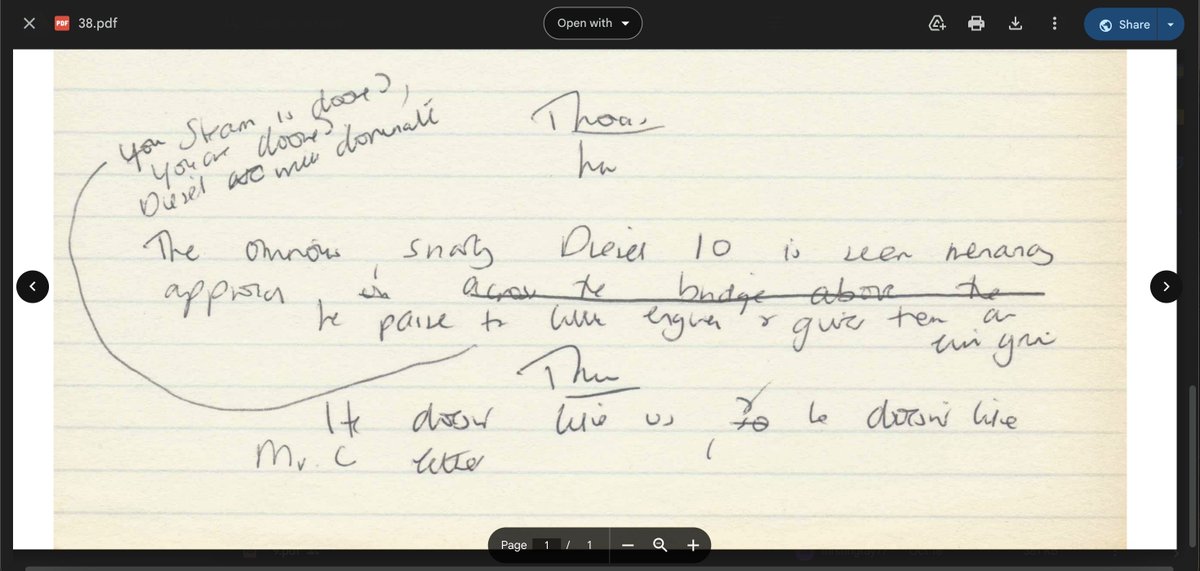 38.pdf
Open with
Share
You Steam is doomed,
You are doomed
Diesel will dominate
Thomas
The ominous, snarly Diesel 10 is seen menancy
approach across the bridge above the
he pause to engines & gives them an
evil grin
Tho
He doesn't like us & to he doesn't like
Mr. C either
Page 1 / 1